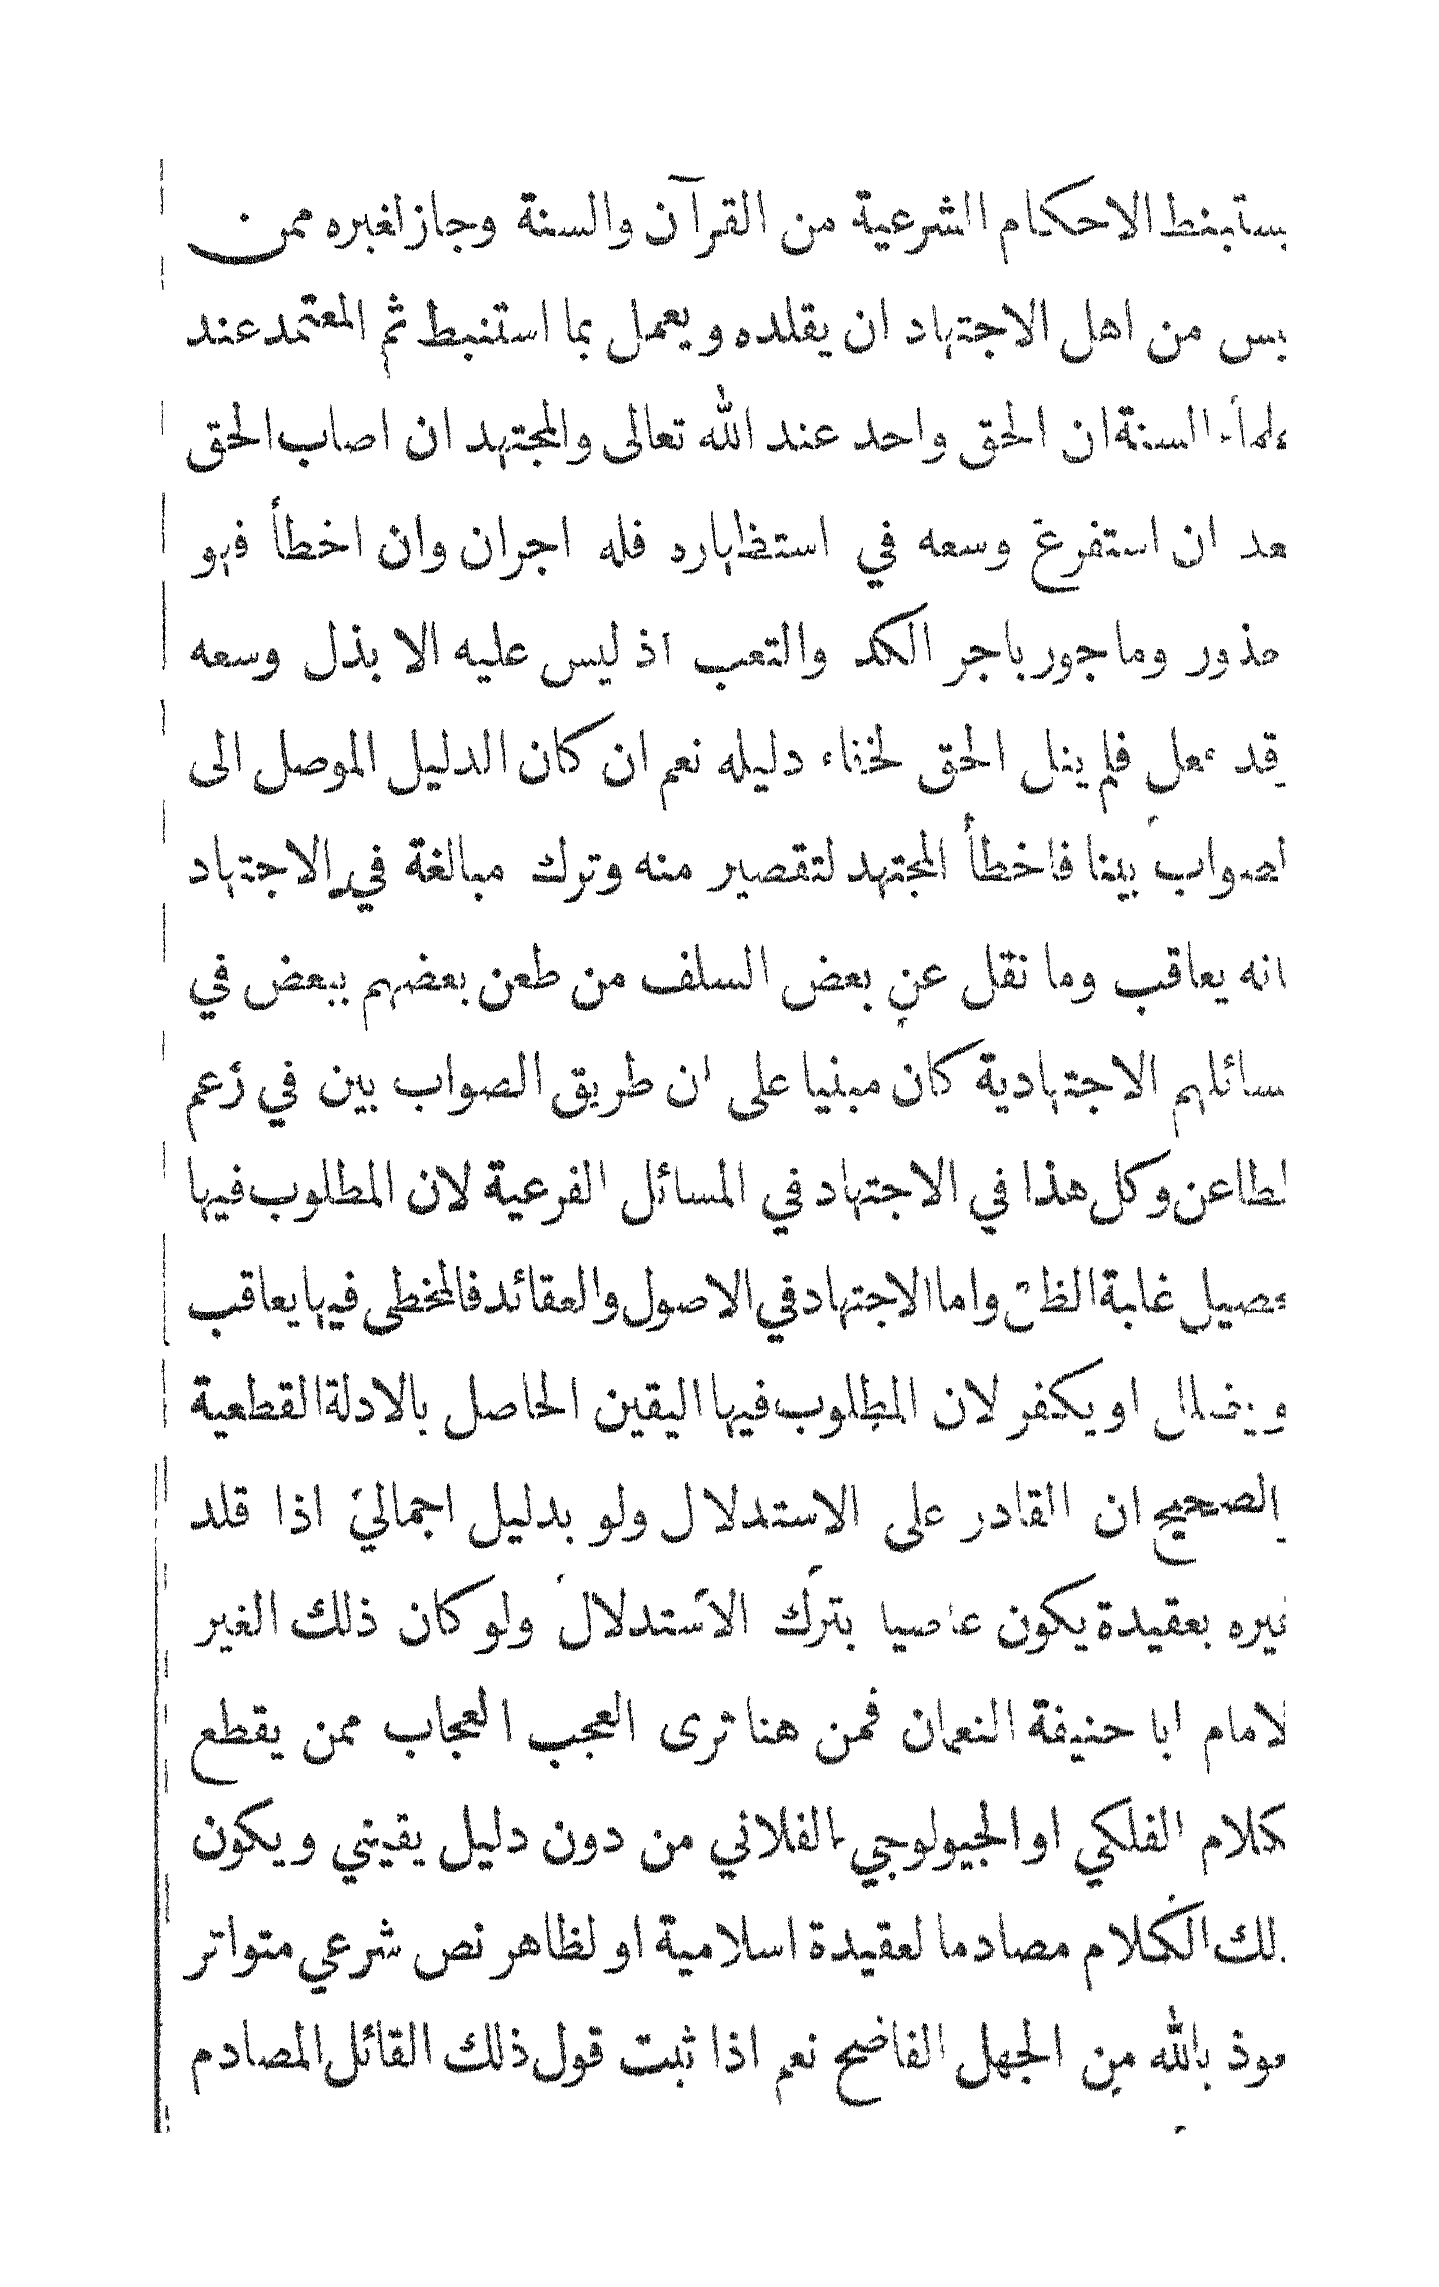 يستنبط الاحكام الشرعية من القرآن والسنة وجاز لغيره ممن
ليس من اهل الاجتهاد ان يقلده ويعمل بما استنبط ثم المعتمد عند
علمأء السنة ان الحق واحد عند الله تعالى والمجتهد ان اصاب الحق
بعد ان استفرغ وسعه في استظهاره فله اجران وان اخطأ فهو
معذور وماجور باجر الكد والتعب اذ ليس عليه الا بذل وسعه
وقد فعل فلم ينل الحق لخفاء دليله نعم ان كان الدليل الموصل الى
الصواب بينا فاخطأ المجتهد لتقصير منه وترك مبالغة في الاجتهاد
فانه يعاقب وما نقل عن بعض السلف من طعن بعضهم ببعض في
مسائلهم الاجتهادية كان مبنيا على ان طريق الصواب بين في زعم
الطاعن وكل هذا في الاجتهاد في المسائل الفرعية لان المطلوب فيها
تحصيل غلبة الظن واما الاجتهاد في الاصول والعقائد فالمخطى فيها يعاقب
ويضلل او يكفر لان المطلوب فيها اليقين الحاصل بالادلة القطعية
والصحيح ان القادر على الاستدلال ولو بدليل اجمالي اذا قلد
غيره بعقيدة يكون عاصيا بترك الاستدلال ولو كان ذلك الغير
الامام ابا حنيفة النعمان فمن هنا ترى العجب العجاب ممن يقطع
بكلام الفلكي او الجيولوجي الفلاني من دون دليل يقيني ويكون
ذلك الكلام مصادما لعقيدة اسلامية او لظاهر نص شرعي متواتر
نعوذ بالله من الجهل الفاضح نعم اذا ثبت قول ذلك القائل المصادم